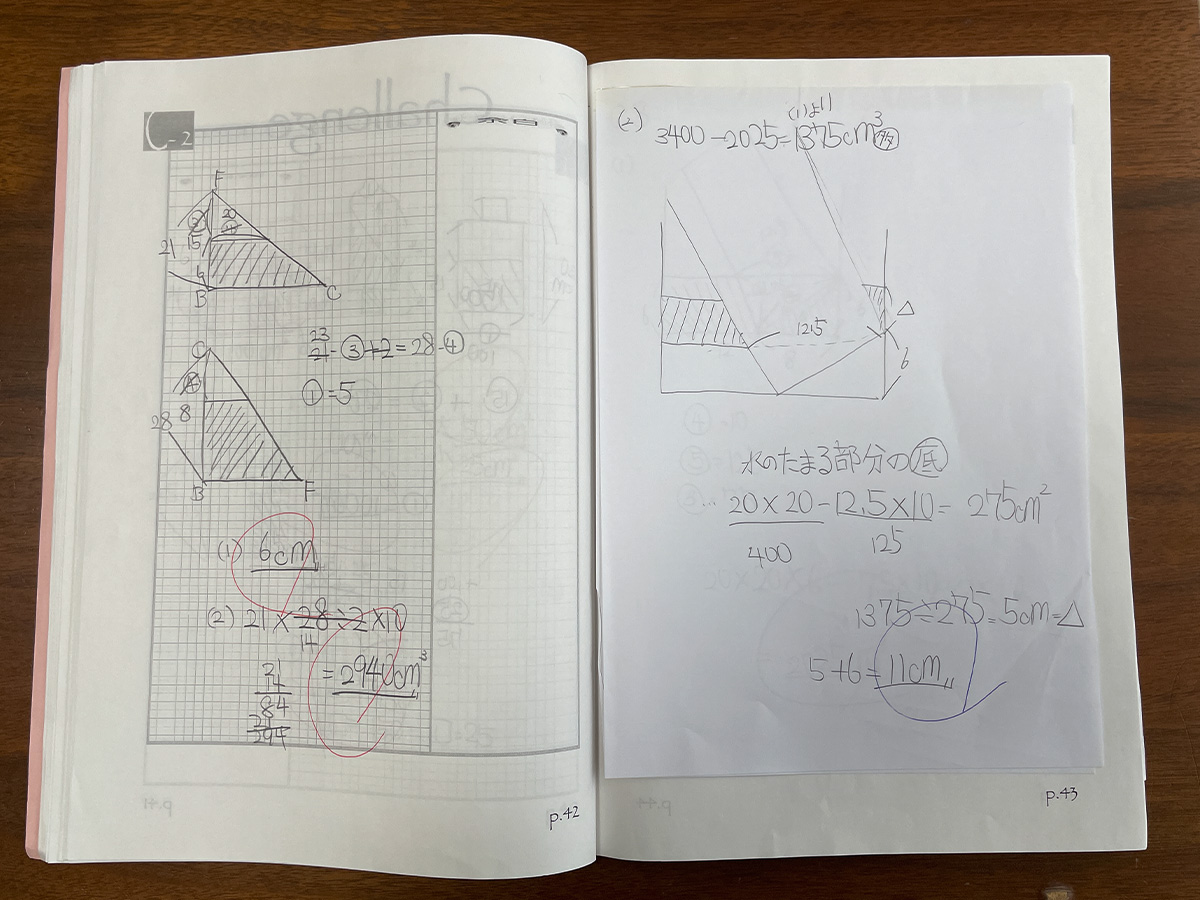 C-2
余白
F
20
15
21
6
B
C
C
8
28
B
F
23
21-③+2=28-④
①=5
(1) 6cm
(2) 21×28÷2×10
14
=2940cm³
21
14
84
21
294
p.42
(2)
(1)より
3400-2025=1375cm³
12.5
△
6
水のたまる部分の底
…20×20-12.5×10=275cm²
400
125
1375÷275=5cm=△
5+6=11cm
p.43
Challenge
p.41
p.44